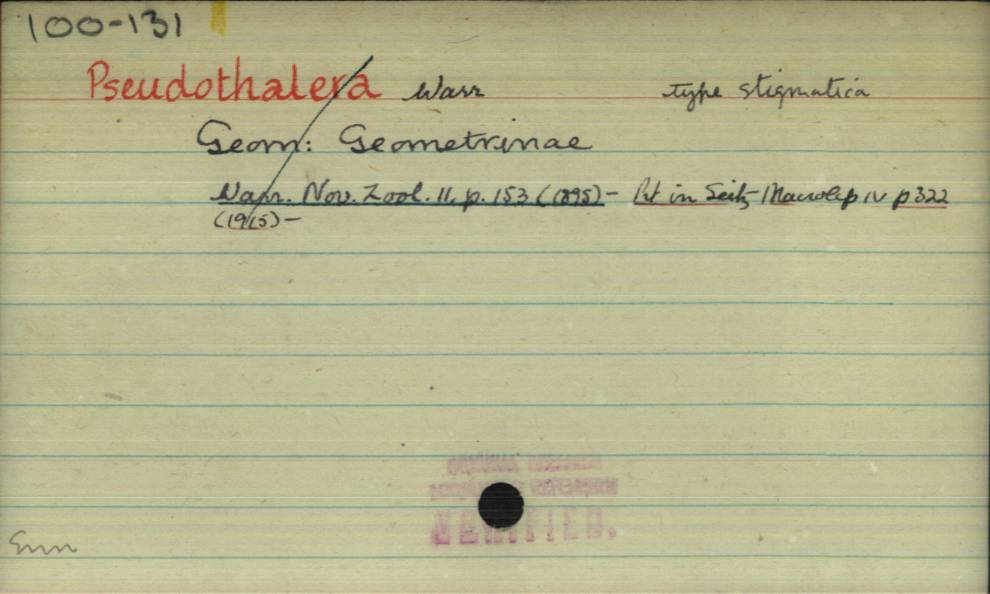 100-131
Pseudothalera Warr type stigmatica
Geom: Geometrinae
Warr. Nov. Zool. II, p. 153 (1895) - Prt in Seitz Macrolep IV p 322
(1915) -
VERIFIED.